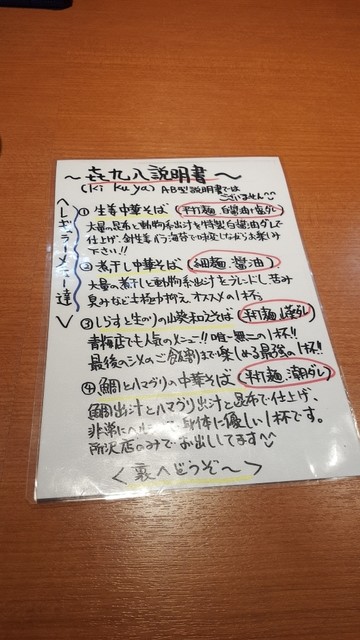 ～㐂九八説明書～
(ki ku ya) AB型説明書では
ございません
<レギュラーメニュー達>
①生姜中華そば (平打麺 白醤油+塩ダレ)
大量の昆布と動物系出汁を特製白醤油ダレで
仕上げ、針生姜、バラ海苔で味変しながらお楽しみ
下さい!!
②煮干し中華そば (細麺 醤油)
大量の煮干しと動物系出汁をブレンドし苦み
臭みなどを極力抑え オススメの1杯
③しらすと生のりの山葵和えそば (平打麺
青梅店でも人気のメニュー!!唯一無二の1杯!!
最後のシメのご飯割まで楽しめる最強の1杯!!
④鯛とハマグリの中華そば (平打麺 潮ダレ)
鯛出汁とハマグリ出汁と昆布で仕上げ、
非常にヘルシーで身体に優しい1杯です。
所沢店のみでお出ししてます
<裏へどうぞ～>